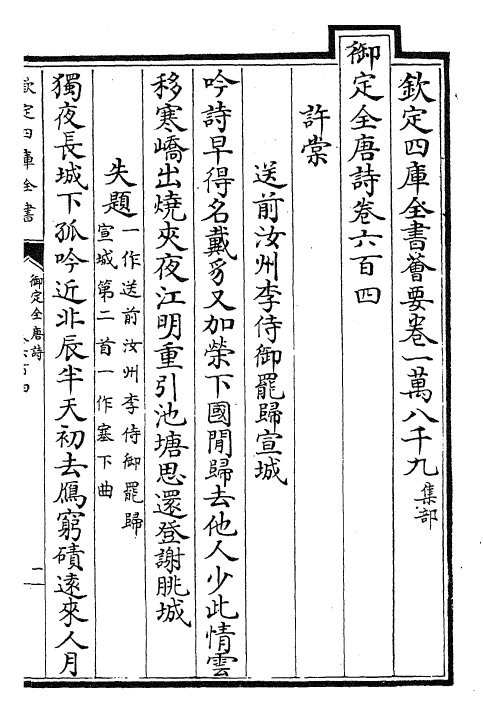 欽定四庫全書薈要卷一萬八千九 集部
御定全唐詩卷六百四
許棠
送前汝州李侍御罷歸宣城
吟詩早得名戴豸又加榮下國閒歸去他人少此情雲
移寒嶠出燒夾夜江明重引池塘思還登謝朓城
失題 一作送前汝州李侍御罷歸
宣城第二首一作塞下曲
獨夜長城下孤吟近北辰半天初去鴈窮磧遠來人月
欽定四庫全書
御定全唐詩
卷六百四
一